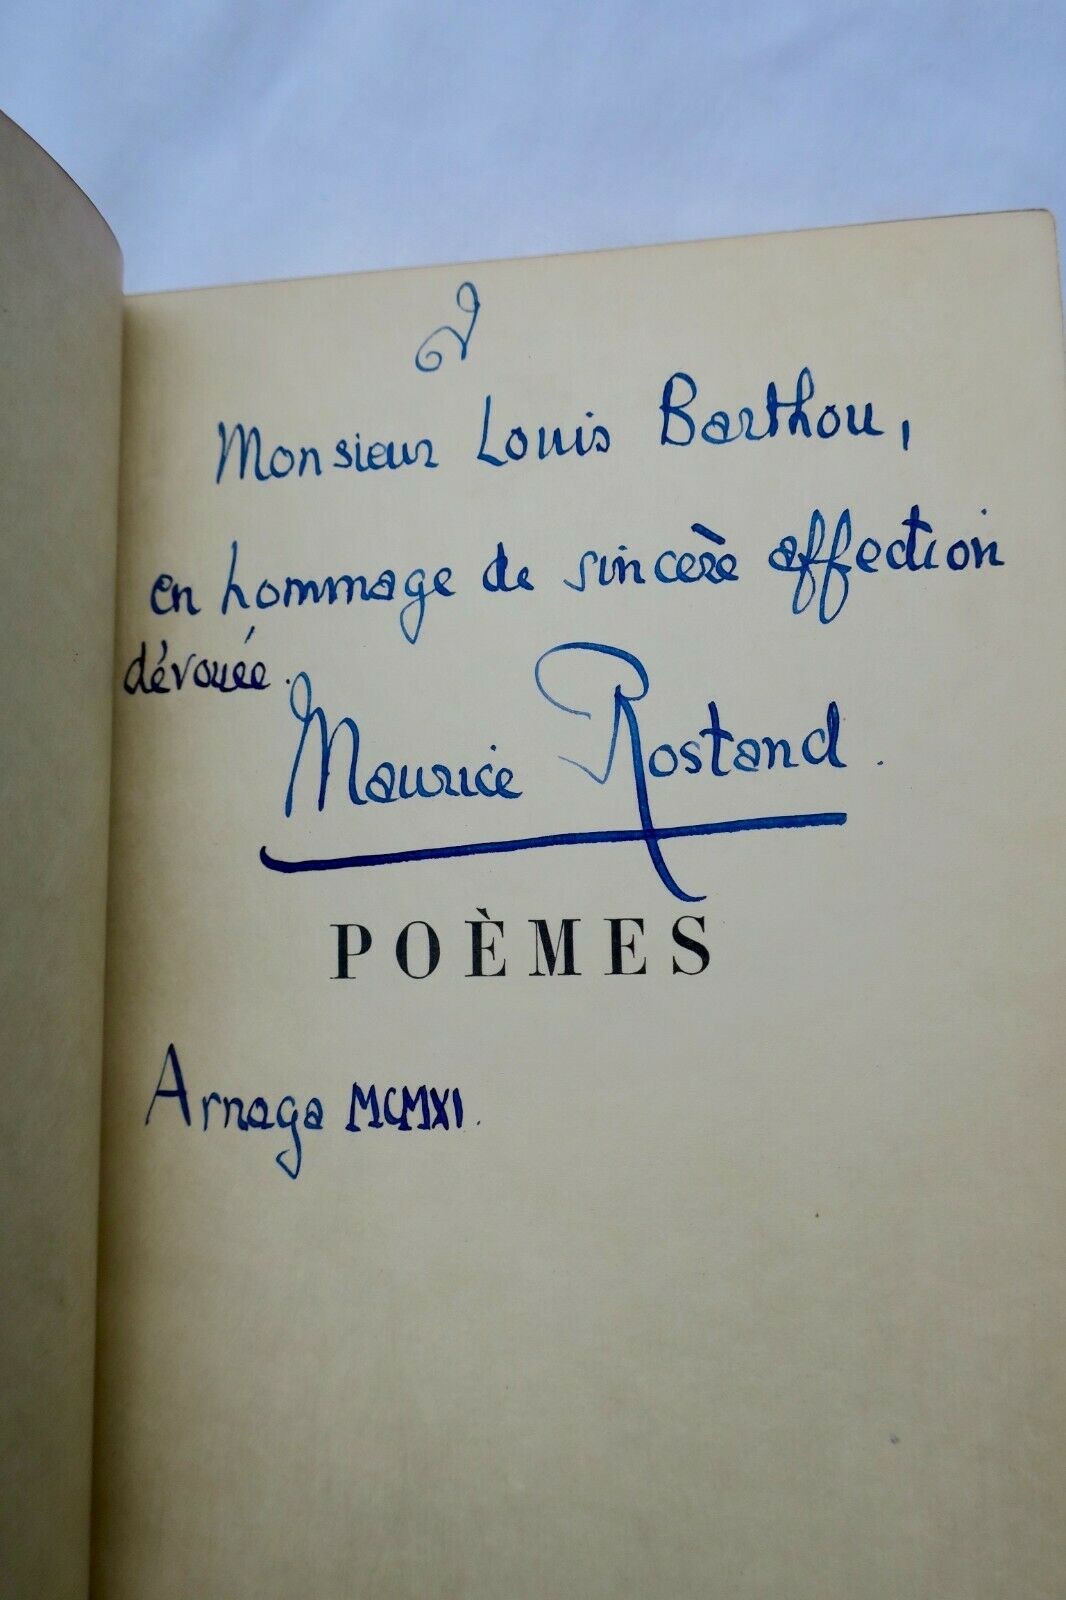 à
Monsieur Louis Barthou,
en hommage de sincère affection
dévouée.
Maurice Rostand.
POÈMES
Arnaga MCMXI.